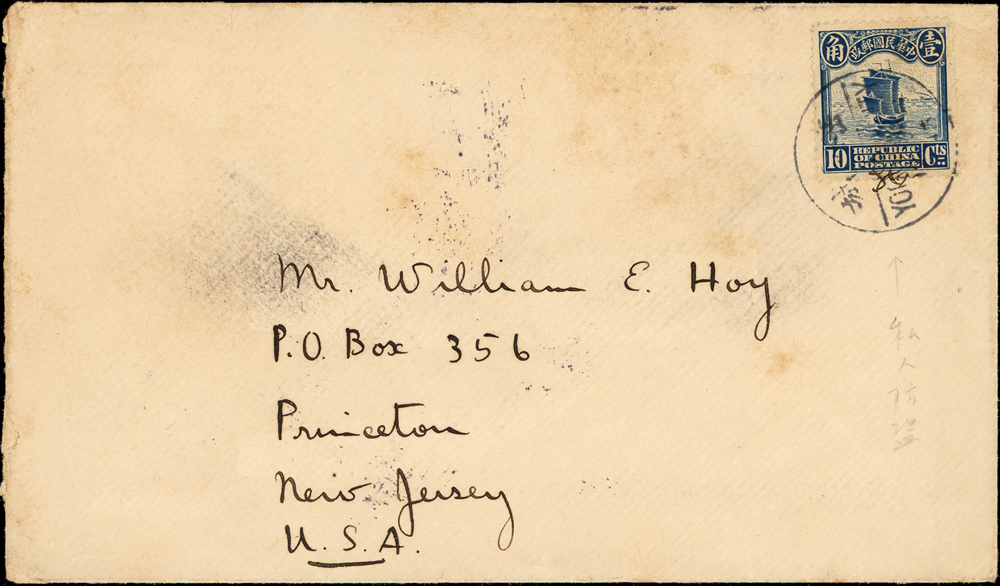 角 中華民國郵政 壹
10 REPUBLIC OF CHINA POSTAGE Cts
Mr. William E. Hoy
P.O. Box 356
Princeton
New Jersey
U.S.A.
↑
私
人
防
盜